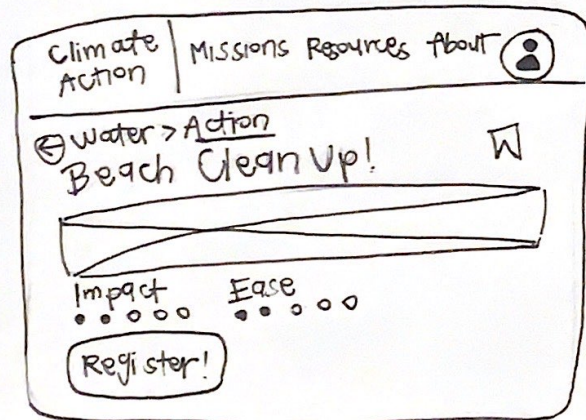 Climate Action
Missions Resources About
Water > Action
Beach Clean Up!
Impact Ease
Register!